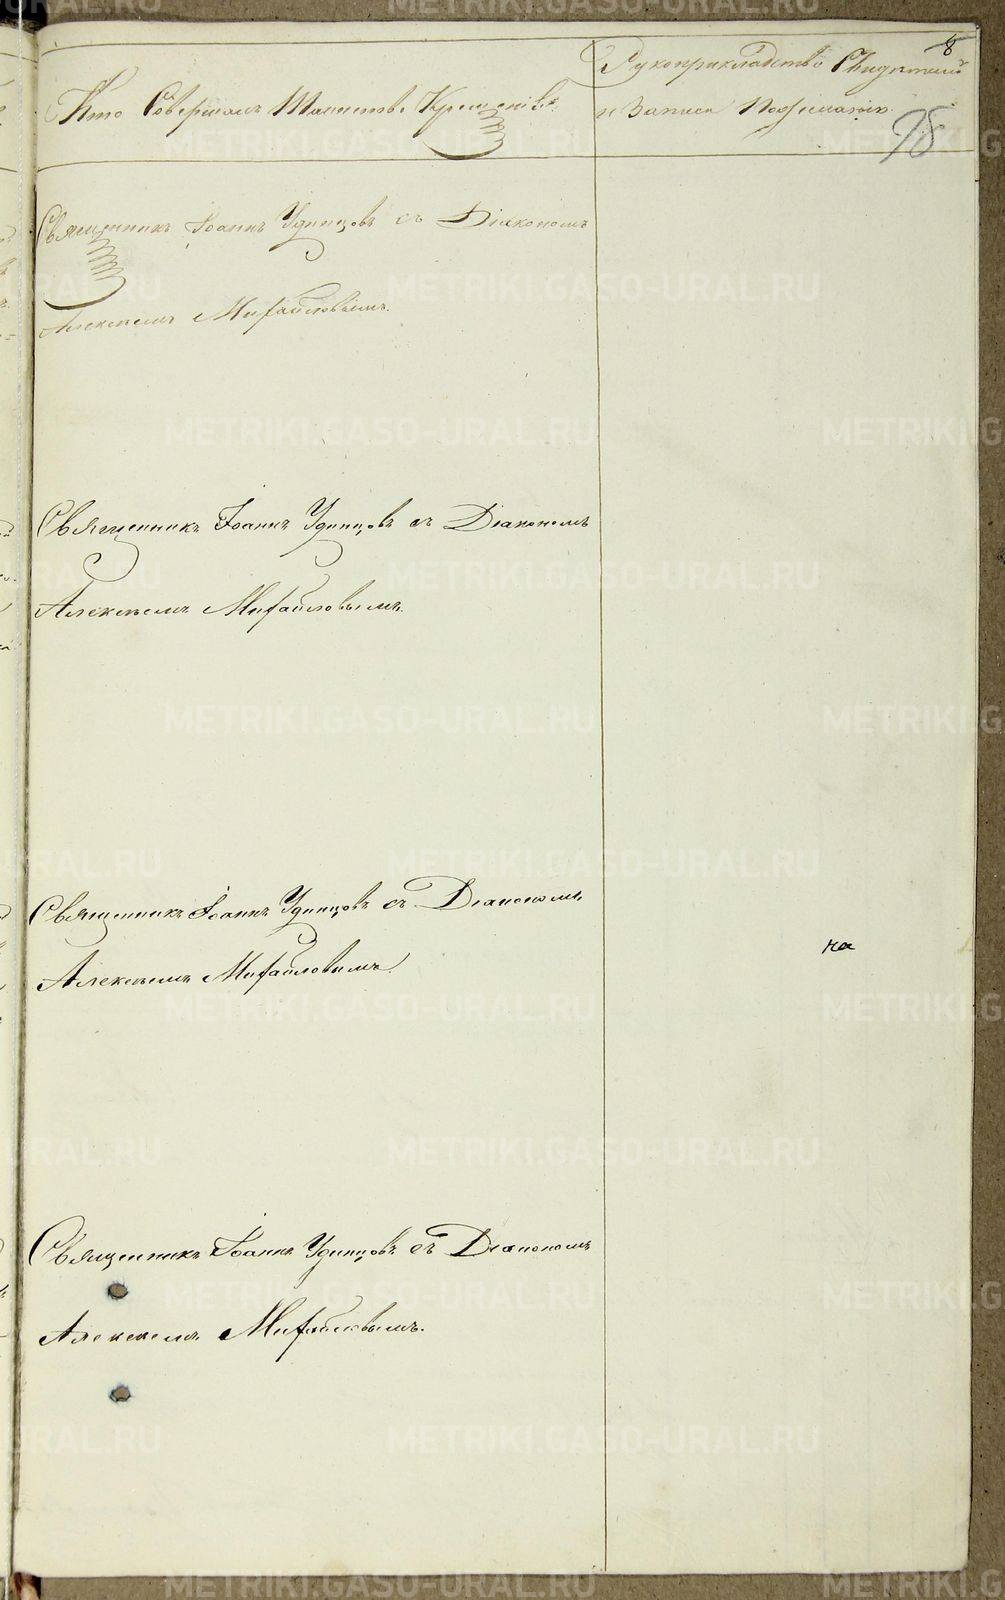 8
Рукоприкладство Свидетелей
Кто Совершалъ Таинство Крещенія.
и Записи По желанію.
98
Священникъ Іоаннъ Удинцовъ съ Діакономъ
Алексѣемъ Михайловымъ.
Священникъ Іоаннъ Удинцовъ съ Діакономъ
Алексѣемъ Михайловымъ.
Священникъ Іоаннъ Удинцовъ съ Діакономъ
на
Алексѣемъ Михайловымъ.
Священникъ Іоаннъ Удинцовъ съ Діакономъ
Алексѣемъ Михайловымъ.
METRIKI.GASO-URAL.RU